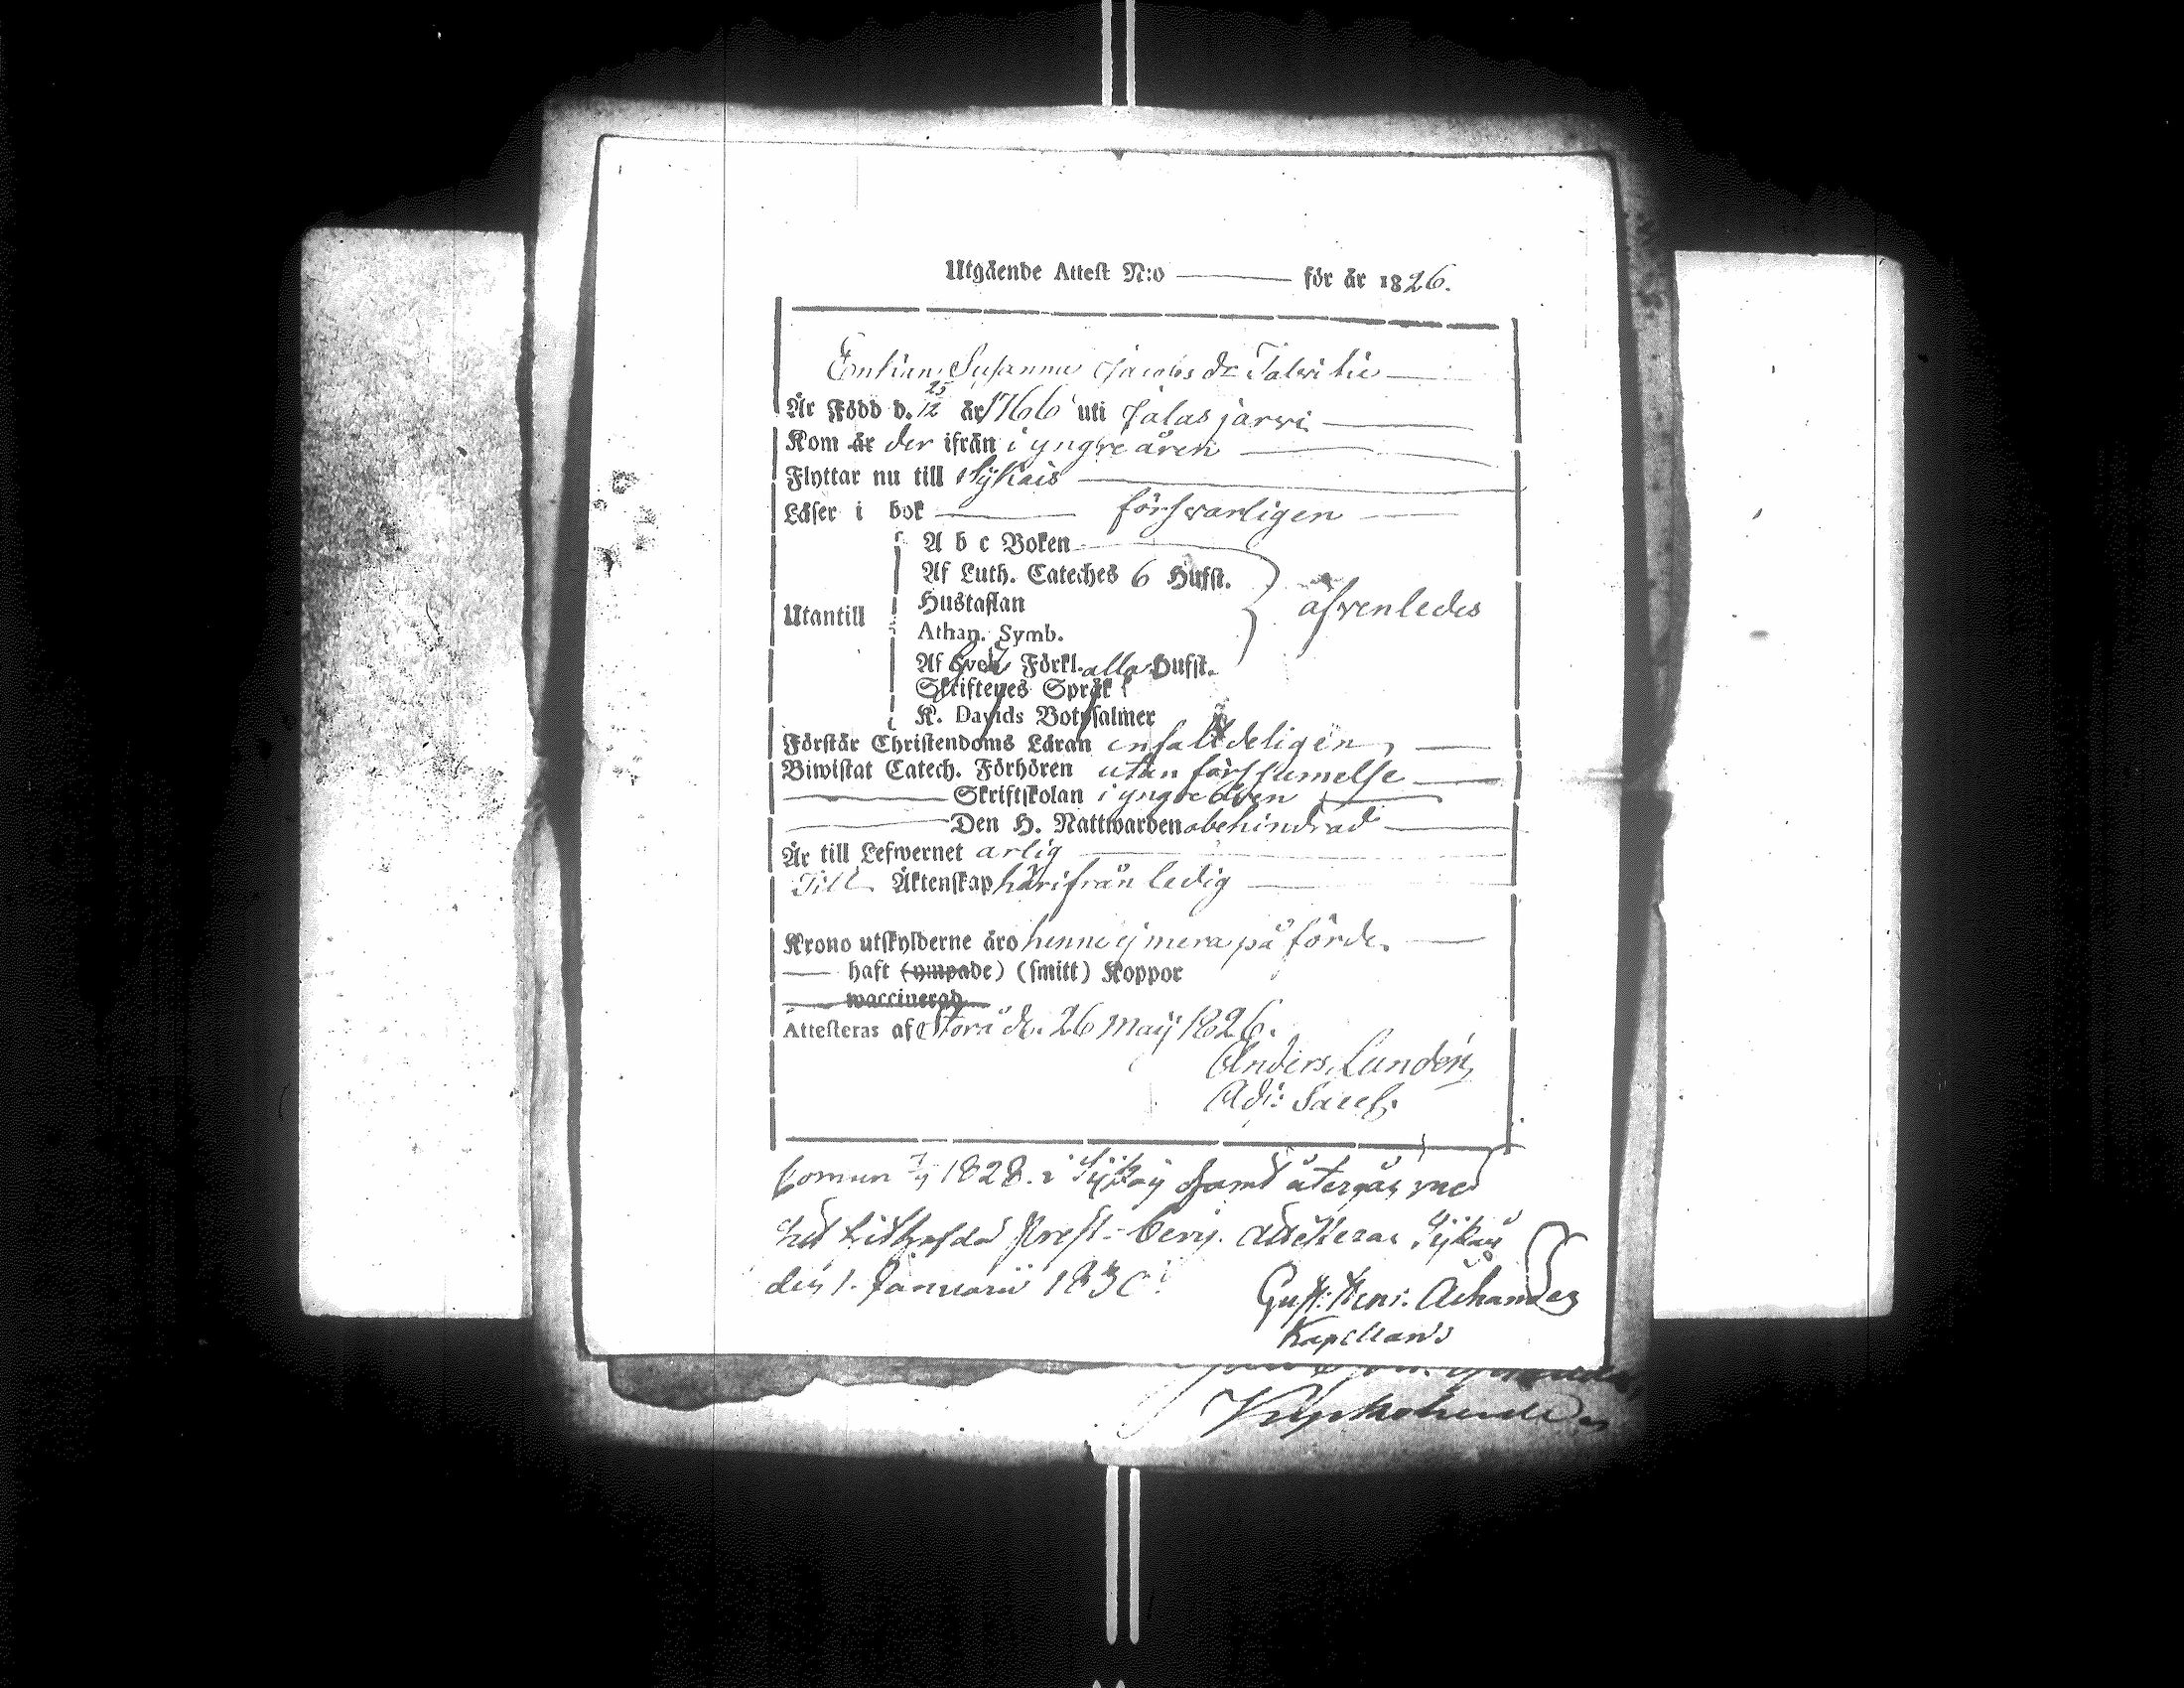 Utgående Attest N:o ——— för år 1826.
Enkian Susanna Jacobs dr Talvitie
Är Född d. 25/12 år 1766 uti Jalasjärvi
Kom år der ifrån i yngre åren
Flyttar nu till Sykais
Läser i bok försvarligen
A b c Boken
Af Luth. Cateches 6 Hufst.
Hustaflan
Utantill äfvenledes
Athan. Symb.
Af Förkl. alla Hufst.
Skriftenes Språk
K. Davids Botpsalmer
Förstår Christendoms Läran enfalldeligen,
Biwistat Catech. Förhören utan försummelse
Skriftskolan i yngre åren
Den H. Nattwarden obehindrad
Är till Lefwernet ärlig
Till Äktenskap härifrån ledig
Krono utskylderne äro henne ej mera på förde.
haft (ympade) (smitt) Koppor
waccinerad
Attesteras af Storå d. 26 Maij 1826.
Anders Lundén
Adj: Sacr.
1828. i samt återgår med
Prest-bevis. Attesteras
den 1. Januarii 1830.
Gust. Henr.
Kapellans